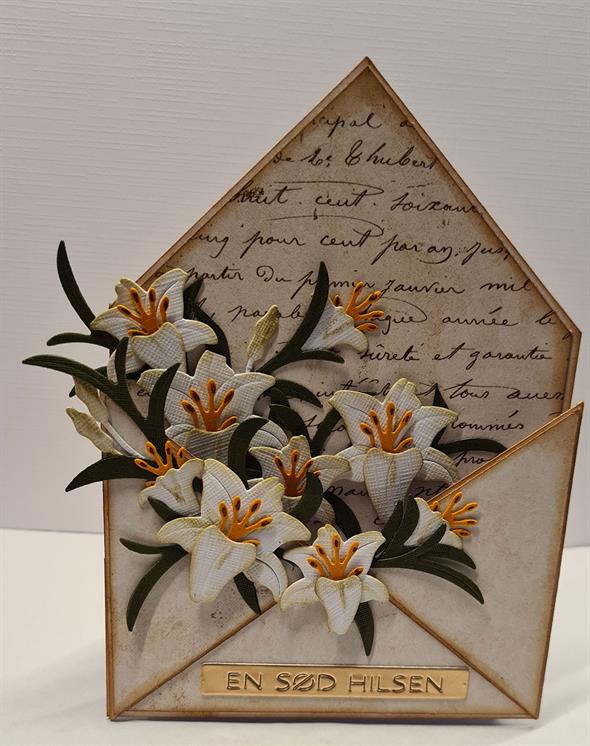 cipal a
de Mr. Thubert
huit . cent . soixan
ing pour cent par an, jus
partir du premier janvier mil
payable aque année le
sûreté et garantie
tous aven
ommés
pro
EN SØD HILSEN